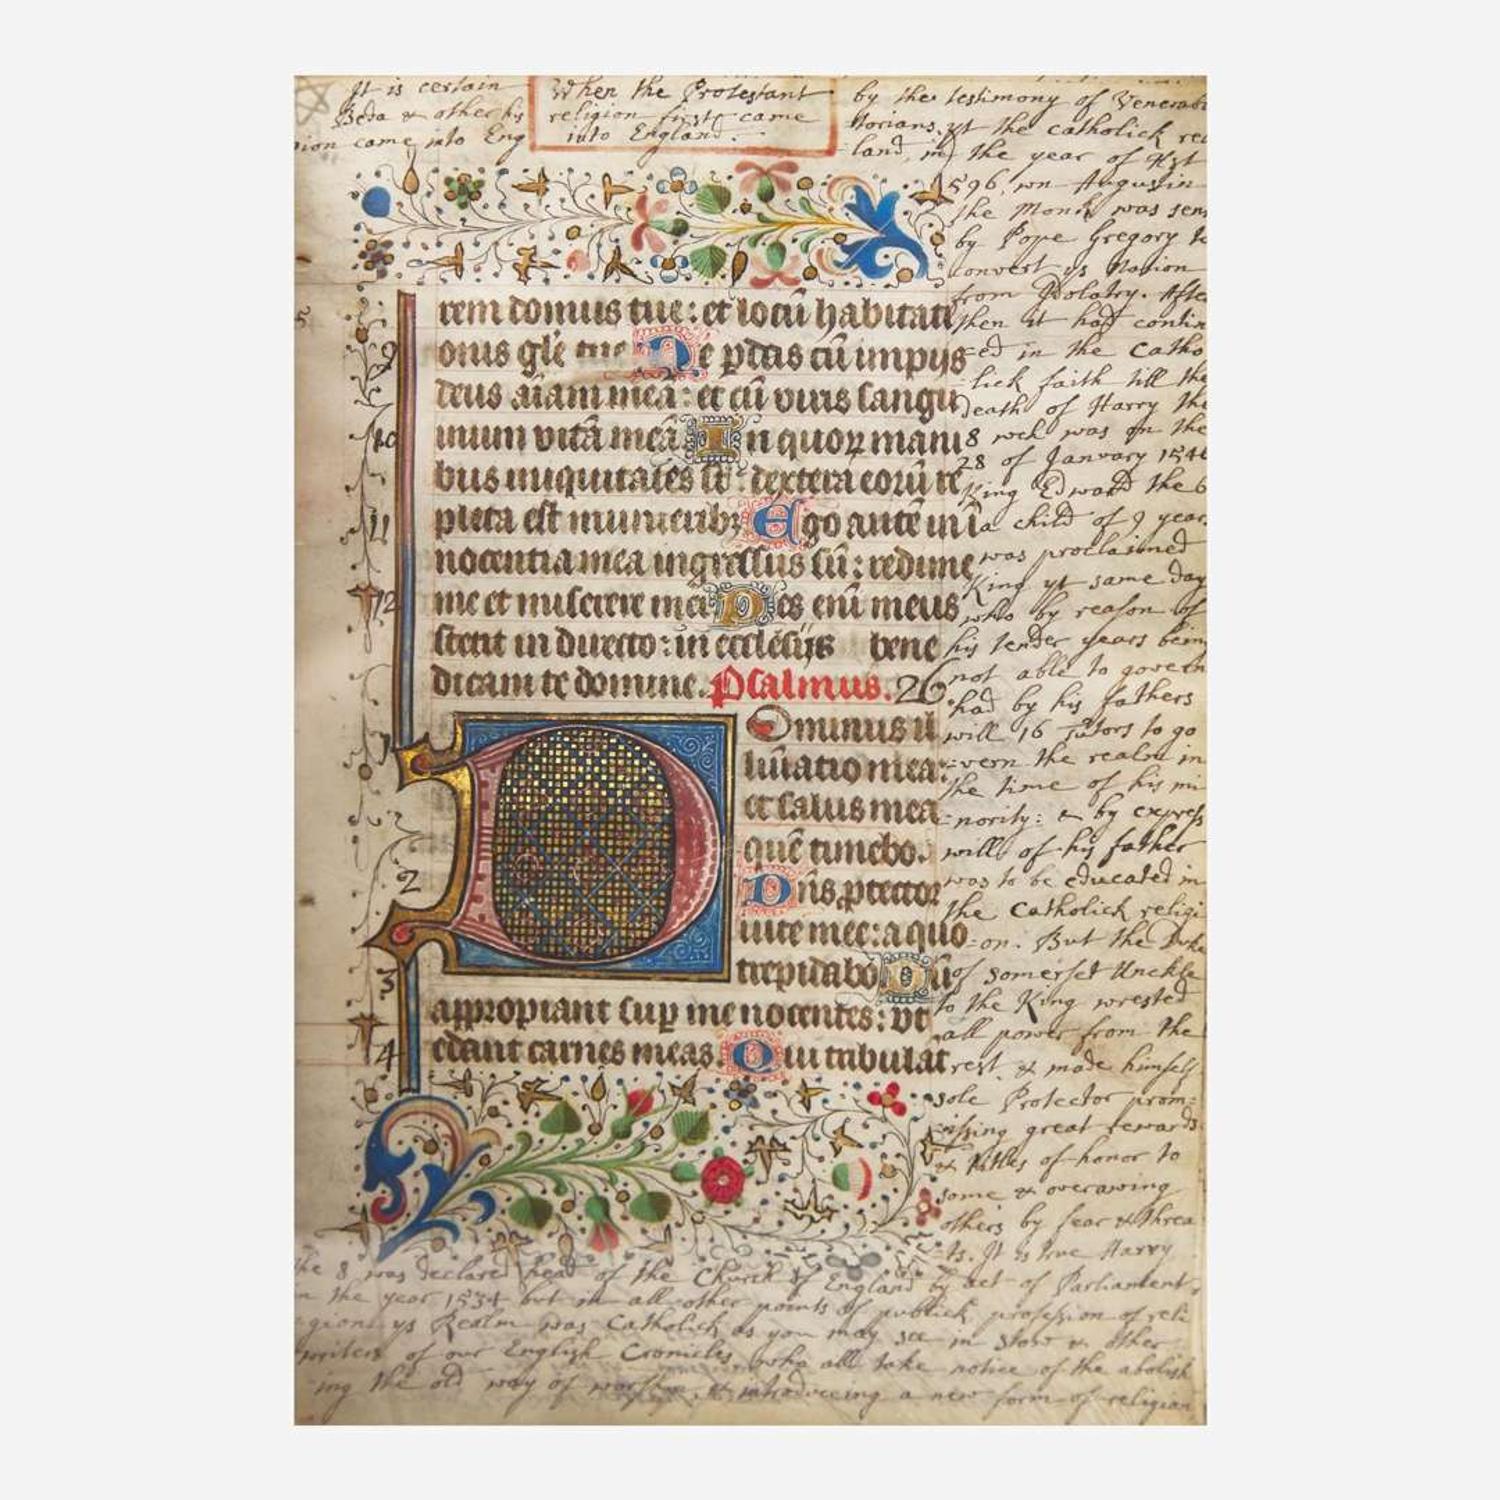 It is certain
When the Protestant
by the testimony of Venerab
Beda & other his
religion first came
torians, yt the catholick re
ion came into Eng
into England.
land, in the year of Xst
596, wn Augustin
the Monk was sen
by Pope Gregory to
convert ys Nation
from Idolatry. Afte
then it had contin
=ed in the Catho
lick faith till the
death of Harry the
8 wch was on the
28 of January 1546
King Edward the 6
a child of 9 years
was proclaimed
King yt same day
who by reason of
his tender years bein
not able to govern
had by his fathers
will 16 Tutors to go
=vern the realm in
the time of his mi
=nority: & by expreſs
will of his father
was to be educated in
the Catholick religi
=on. But the Duke
of Somerset Unckle
to the King wrested
all power from the
rest, & made himself
sole Protector prom=
iſsing great rewards
& titles of honor to
some & overawing
others by fear & threa
ts. It is true Harry
the 8 was declared head of the Church of England by act of Parliament
n the year 1534 but in all other points of publick profeſsion of reli
gion ys Realm was Catholick as you may see in Stow & other
writers of our English Cronicles, who all take notice of the abolish
ing the old way of worship, & introduceing a new form of religion
5
rem domus tue: et locū habitati
9
onis glē tue Ne ꝑdas cū impijs
deus aīam meā: et cū viris sangu
10
inum vitā meā In quoꝝ mani
bus iniquitates sūt: dextera eorū re
11
pleta est muneribꝫ Ego autē in ī
nocentia mea ingressus sū: redime
12
me et miserere mei Pes enī meus
stetit in directo: in ecclesijs bene
dicam te domine. Psalmus. 26
Dominus il
lūīatio mea:
et salus mea
quē timebo.
2
Dn̄s ꝓtector
uite mee: a quo
3
trepidabo Dū
appropiant suꝑ me nocentes: vt
4
edant carnes meas. Qui tribulāt